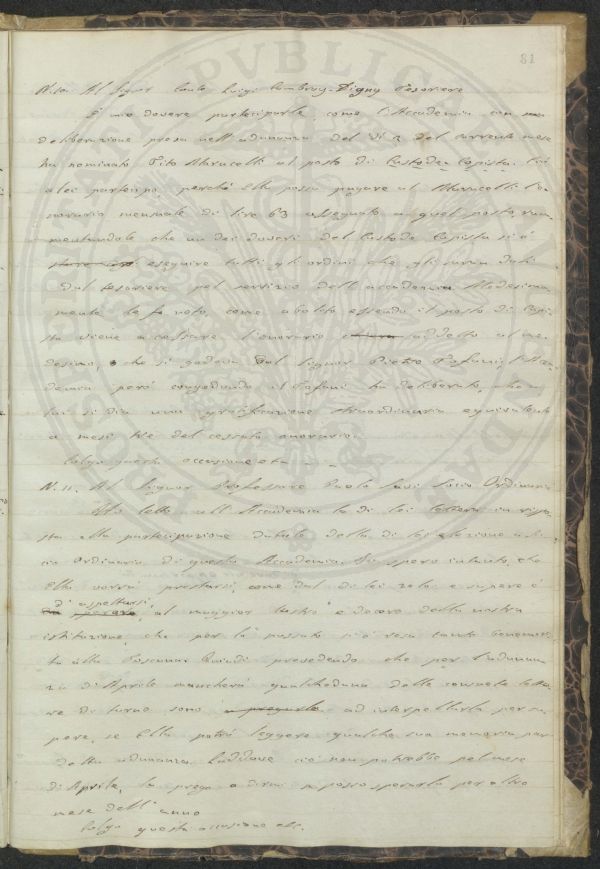 81
N. 10. Al Signor Conte Luigi Cambray-Digny Tesoriere
È mio dovere parteciparle, come l'Accademia con sua
deliberazione presa nell'adunanza del dì 2 del corrente mese
ha nominato Tito Marucelli al posto di Custode-Copista. Ciò
a lei partecipo, perché Ella possa pagare al Marucelli l'o-
norario mensuale di lire 63 assegnato a quel posto, ram-
mentandole che un dei doveri del Custode Copista si è
eseguire tutti gli ordini che gli saran dati
dal tesoriere pel servizio dell'accademia. Medesima-
mente le fo noto, come abolito essendo il posto di Copi-
sta viene a cessare l'onorario addetto al me-
desimo, che si godeva dal Signor Pietro Fanfani; l'Acca-
demia però congedando il Fanfani ha deliberato, che a
lui si dia una gratificazione straordinaria equivalente
a mesi tre del cessato onorario.
Colgo questa occasione etc.
N. 11. Al Signor Professore Paolo Savi Socio Ordinario
Ho letto all'Accademia la di lei lettera in rispo-
sta alla partecipazione datale della di lei elezione a So-
cio Ordinario di questa Accademia. Si spera intanto, che
Ella vorrà prestarsi, come dal di lei zelo e sapere è
d'aspettarsi, al maggior lustro e decoro della nostra
istituzione, che per lo passato si è resa tanto benemeri-
ta alla Toscana. Quindi prevedendo che per l'adunan-
za di Aprile mancherà qualcheduna delle consuete lettu-
re di turno sono ad interpellarla per sa-
pere, se Ella potrà leggere qualche sua memoria per
detta adunanza. Laddove ciò non potrebbe pel mese
di Aprile, la prego a dirmi se posso sperarlo per altro
mese dell'anno
Colgo questa occasione etc.